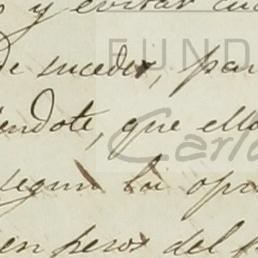 y evitar
de suceder, par
endote, que ello
segun la opi
en pesos del
FUND
Carlo